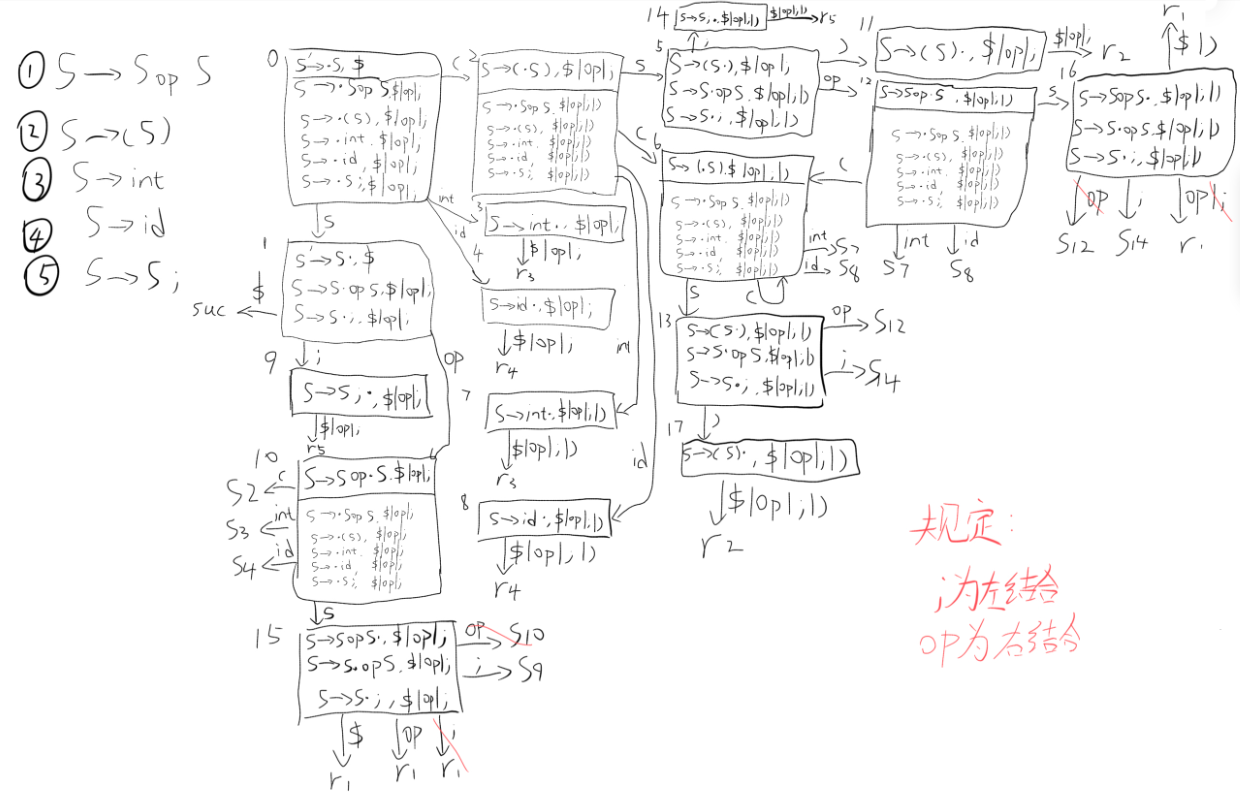 ① S → S op S
② S → (S)
③ S → int
④ S → id
⑤ S → S ;
0
S' → ·S, $
S → ·S op S, $|op|;
S → ·(S), $|op|;
S → ·int, $|op|;
S → ·id, $|op|;
S → ·S;, $|op|;
S
(
int
id
1
S' → S·, $
S → S·op S, $|op|;
S → S·;, $|op|;
$
suc
;
op
9
S → S;·, $|op|;
$|op|;
r5
10
S → S op·S, $|op|;
S → ·S op S, $|op|;
S → ·(S), $|op|;
S → ·int, $|op|;
S → ·id, $|op|;
S → ·S;, $|op|;
(
S2
int
S3
id
S4
S
15
S → S op S·, $|op|;
S → S·op S, $|op|;
S → S·;, $|op|;
op
S10
;
S9
$
r1
op
r1
;
r1
2
S → (·S), $|op|;
S → ·S op S, $|op|;|)
S → ·(S), $|op|;|)
S → ·int, $|op|;|)
S → ·id, $|op|;|)
S → ·S;, $|op|;|)
S
(
int
id
3
S → int·, $|op|;
$|op|;
r3
4
S → id·, $|op|;
$|op|;
r4
7
S → int·, $|op|;|)
$|op|;|)
r3
8
S → id·, $|op|;|)
$|op|;|)
r4
14
S → S;·, $|op|;|)
$|op|;|)
r5
5
;
S → (S·), $|op|;
S → S·op S, $|op|;|)
S → S·;, $|op|;|)
)
op
6
S → (·S), $|op|;|)
S → ·S op S, $|op|;|)
S → ·(S), $|op|;|)
S → ·int, $|op|;|)
S → ·id, $|op|;|)
S → ·S;, $|op|;|)
int
S7
id
S8
S
(
13
S → (S·), $|op|;|)
S → S·op S, $|op|;|)
S → S·;, $|op|;|)
op
S12
;
S14
)
17
S → (S)·, $|op|;|)
$|op|;|)
r2
11
S → (S)·, $|op|;
$|op|;
r2
12
S → S op·S, $|op|;|)
S → ·S op S, $|op|;|)
S → ·(S), $|op|;|)
S → ·int, $|op|;|)
S → ·id, $|op|;|)
S → ·S;, $|op|;|)
(
int
S7
id
S8
S
16
r1
$|)
S → S op S·, $|op|;|)
S → S·op S, $|op|;|)
S → S·;, $|op|;|)
op
S12
;
S14
op|;
r1
规定:
;为左结合
op为右结合